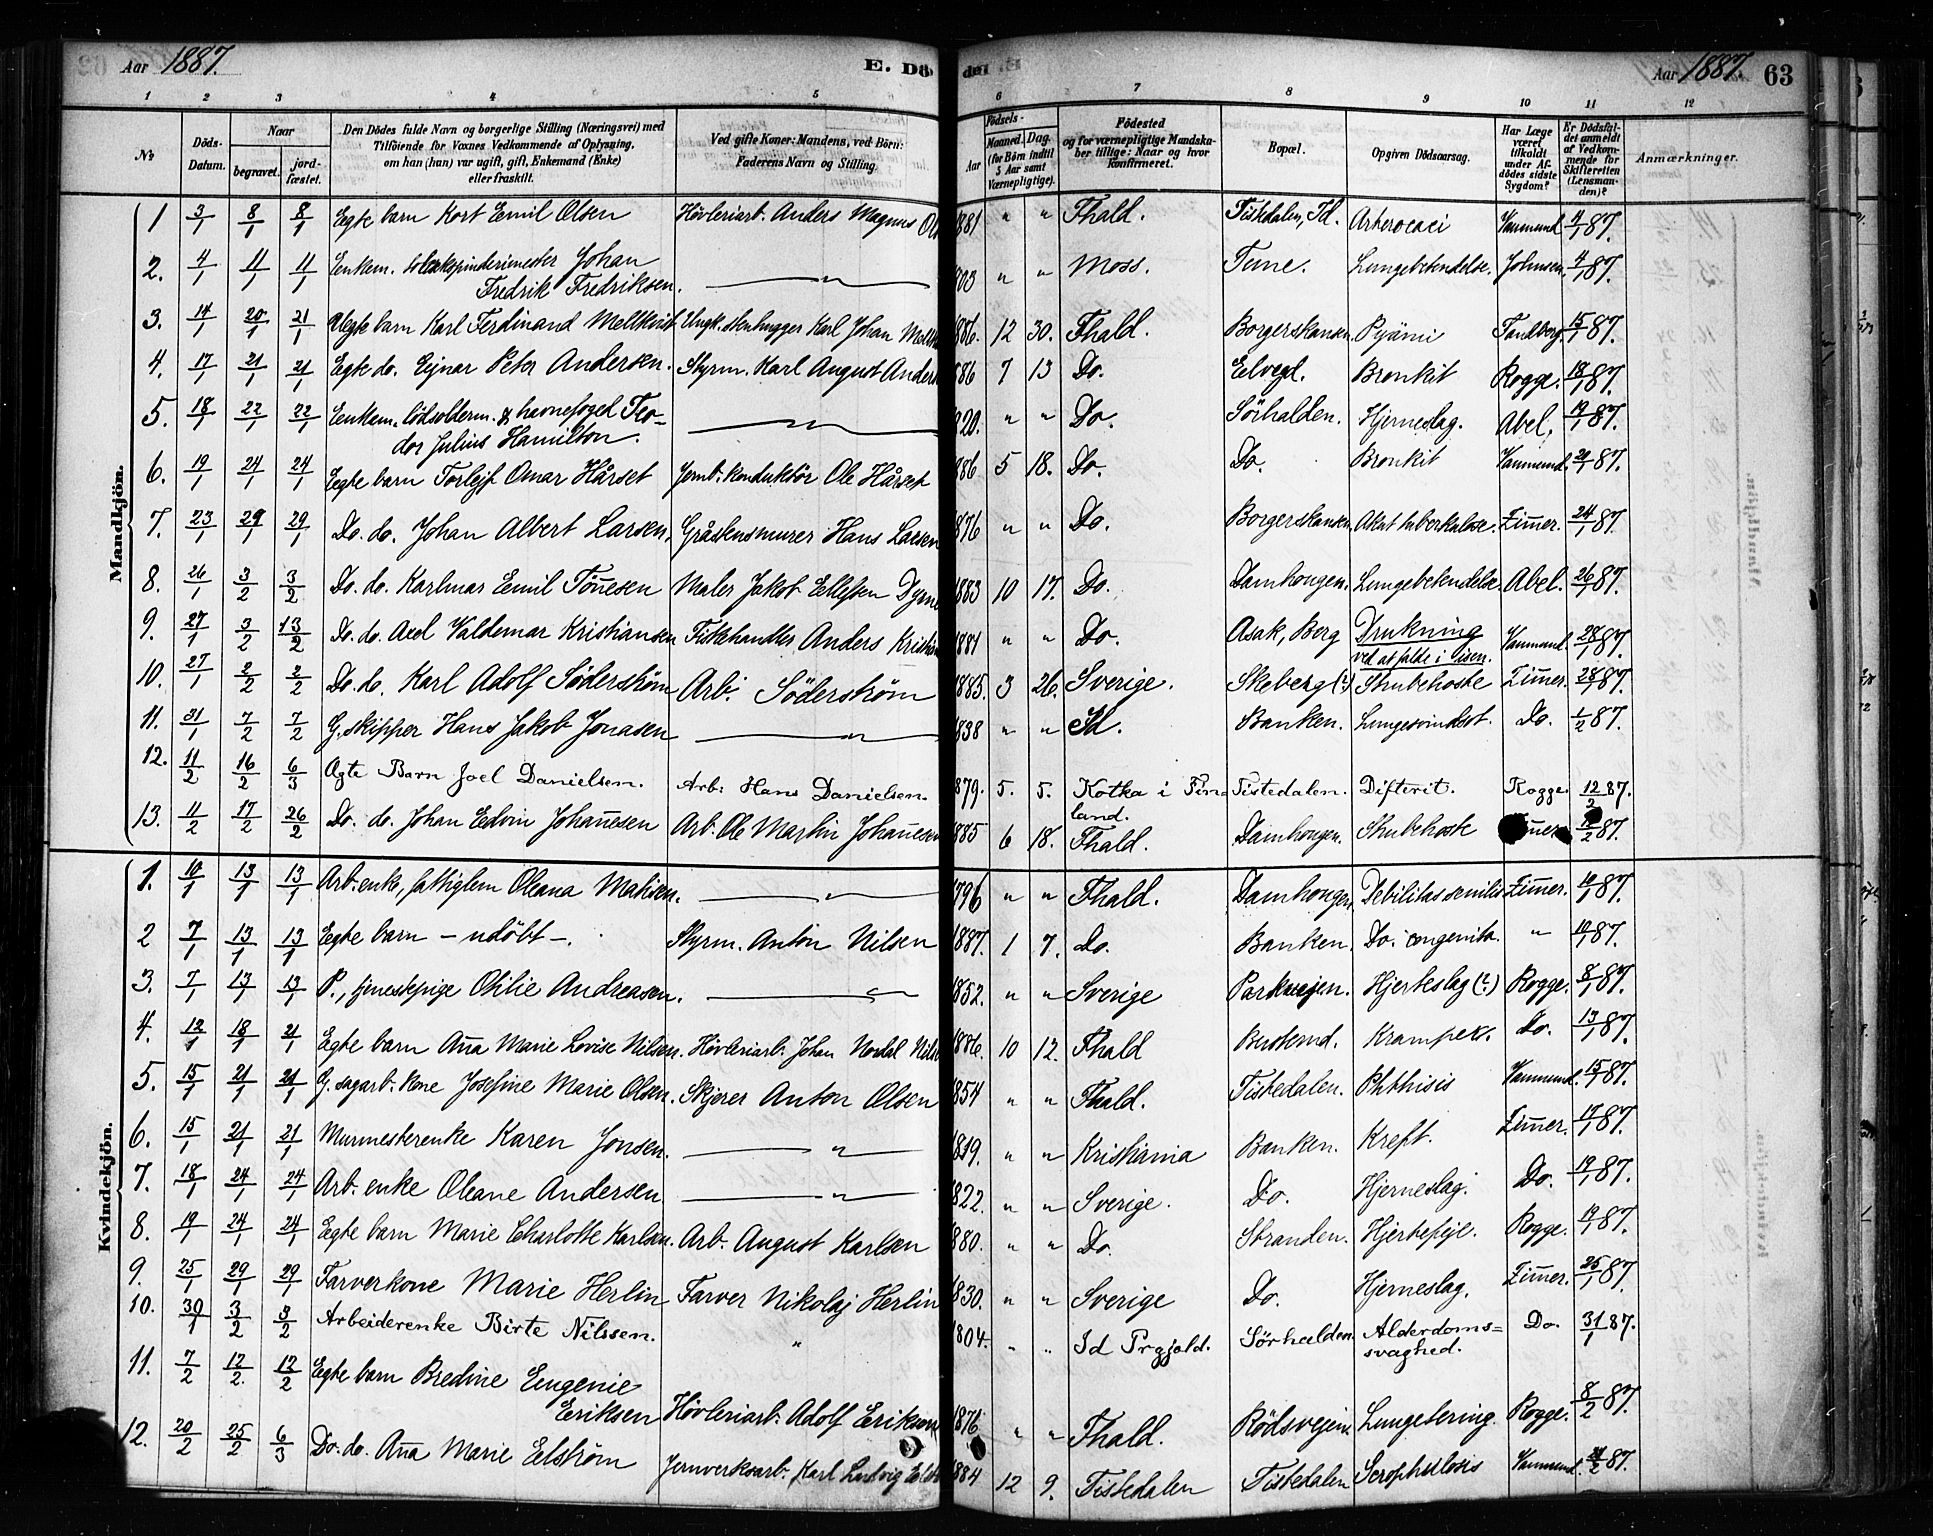 Aar 1887. E. Dö- den Aar 1887. 63
1 2 3 4 5 6 7 8 9 10 11 12
No Döds-Datum. Naar begravet. jord-fæstet. Den Dödes fulde Navn og borgerlige Stilling (Næringsvei) med Tilföiende for Voxnes Vedkommende af Oplysning, om han (hun) var ugift, gift, Enkemand (Enke) eller fraskilt. Ved gifte Koner: Mandens, ved Börn: Faderens Navn og Stilling. Födsels- Aar Maaned. Dag. (for Börn indtil 5 Aar samt Værnepligtige). Födested og for værnepligtige Mandskaber tillige: Naar og hvor konfirmeret. Bopæl. Opgiven Dödsaarsag. Har Læge været tilkaldt under Afdödes sidste Sygdom? Er Dödsfaldet anmeldt af Vedkommende for Skifteretten (Lensmanden)? Anmærkninger.
Mandkjön.
1 3/1 8/1 8/1 Egte barn Kort Emil Olsen Hövleriarb. Anders Magnus 1881 " " Fhald. Tistedalen, Id. Vanmund 4/1 87.
2. 4/1 11/1 11/1 Enkem. Johan Fredrik Fredriksen. 803 " " Moss. Tune. Lungebetendelse. Johnsen. 4/1 87.
3. 14/1 20/1 21/1 Uegte barn Karl Ferdinand Ungk. stenhugger Karl Johan 1886. 12 30. Fhald. Borgerskansen. Pyämi 15/1 87.
4. 17/1 21/1 21/1 Egte do. Ejnar Peter Andersen. Styrm. Karl August 886 7 13 Do. Bronkit Rogge. 18/1 87.
5. 18/1 22/1 22/1 Enkem. & havnefoged Teodor Julius Hamilton. 820. " " Do. Sörhalden. Hjerneslag. Abel. 19/1 87.
6. 19/1 24/1 24/1 Egte barn Torlejf Omar Hårset Jernb. konduktör Ole Hårset 886 5 18. Do. Do. Bronkit Vanmund. 21/1 87.
7. 23/1 29/1 29/1 Do. do. Johan Albert Larsen. Gråstensmurer Hans Larsen 1876 " " Do. Borgerskansen. Akut tuberkulose. Zimer. 24/1 87.
8. 26/1 3/2 3/2 Do. do. Karlmar Emil Tönesen Maler Jakob Ellefsen 1883 10 17. Do. Damhougen. Lungebetendelse Abel. 26/1 87.
9. 27/1 3/2 13/2 Do. do. Axel Valdemar Kristiansen Fiskehandler Anders 1881 " " Do. Asak, Berg Drukning ved at falde i isen. Vanmund. 28/1 87.
10. 27/1 2/2 2/2 Do. do. Karl Adolf Söderström Arb. Söderström 1885. 3 26. Sverige. Skeberg (?) Strubehoste Zimer. 28/1 87.
11. 31/1 7/2 7/2 G. skipper Hans Jakob Jonasen " 1838 " " Id. Banken. Lungesvindsot. Do. 1/2 87.
12. 11/2 16/2 6/3 Ægte Barn Joel Danielsen. Arb. Hans Danielsen. 879. 5. 5. Kotka i Finland. Tistedalen. Difterit. Rogge 12/2 87.
13. 11/2 17/2 26/2 Do. do. Johan Edvin Johanesen Arb. Ole Martin Johanesen 885 6 18. Fhald. Damhougen. Strubehoste 87.
Kvindekjön.
1. 10/1 13/1 13/1 Arb. enke, fattiglem Oleana " 796 " " Fhald. Damhougen. Debilitas senilis Zimer. 10/1 87.
2 7/1 13/1 13/1 Egte barn - udöbt -. Styrm. Anton Nilsen 1887. 1 7. Do. Banken. Do. congenita. " 10/1 87.
3. 7/1 13/1 13/1 P., tjenestepige Otilie Andreasen. 1852. " " Sverige Parkvejen. Hjerteslag (?) Rogge. 8/1 87.
4. 12/1 18/1 21/1 Egte barn Ana Marie Lovise Nilsen. Hövleriarb. Johan Nordal 1886. 10 12. Fhald Krampe Do. 13/1 87.
5. 15/1 21/1 21/1 G. sagarb. kone Josefine Marie Olsen. Skjerer Anton Olsen 854 " " Fhald. Tistedalen. Phthisis Vanmund. 15/1 87.
6. 15/1 21/1 21/1 Murmesterenke Karen Jonsen. " 1819. " " Kristiania Banken. Kreft. Zimer. 17/1 87.
7. 18/1 24/1 24/1 Arb. enke Oleane Andersen " 822. " " Sverige. Do. Hjerneslag. Do. 19/1 87.
8. 19/1 24/1 24/1 Egte barn Marie Charlotte Karlsen. Arb. August Karlsen 880. " " Do. Stranden. Hjertefejl. Rogge. 19/1 87.
9. 25/1 29/1 29/1 Farverkone Marie Herlin Farver Nikolaj Herlin 830. " " Sverige Do. Hjerneslag. Zimer. 25/1 87.
10. 30/1 3/2 3/2 Arbeiderenke Birte Nilssen. " 1804. " " Id Prgjæld. Sörhalden. Alderdoms=svaghed. Do. 31/1 87.
11. 7/2 12/2. 12/2 Egte barn Bredine Eugenie Eriksen Hövleriarb. Adolf Eriksen 1876 " " Fhald. Rödsvejen. Lungetering. Rogge. 8/2 87.
12. 20/2 25/2 6/3 Do. do. Ana Marie Elström Jernverksarb. Karl Ludvig 884 12 9. Tistedalen Tistedalen Scrophulosis Vanmund. 87.